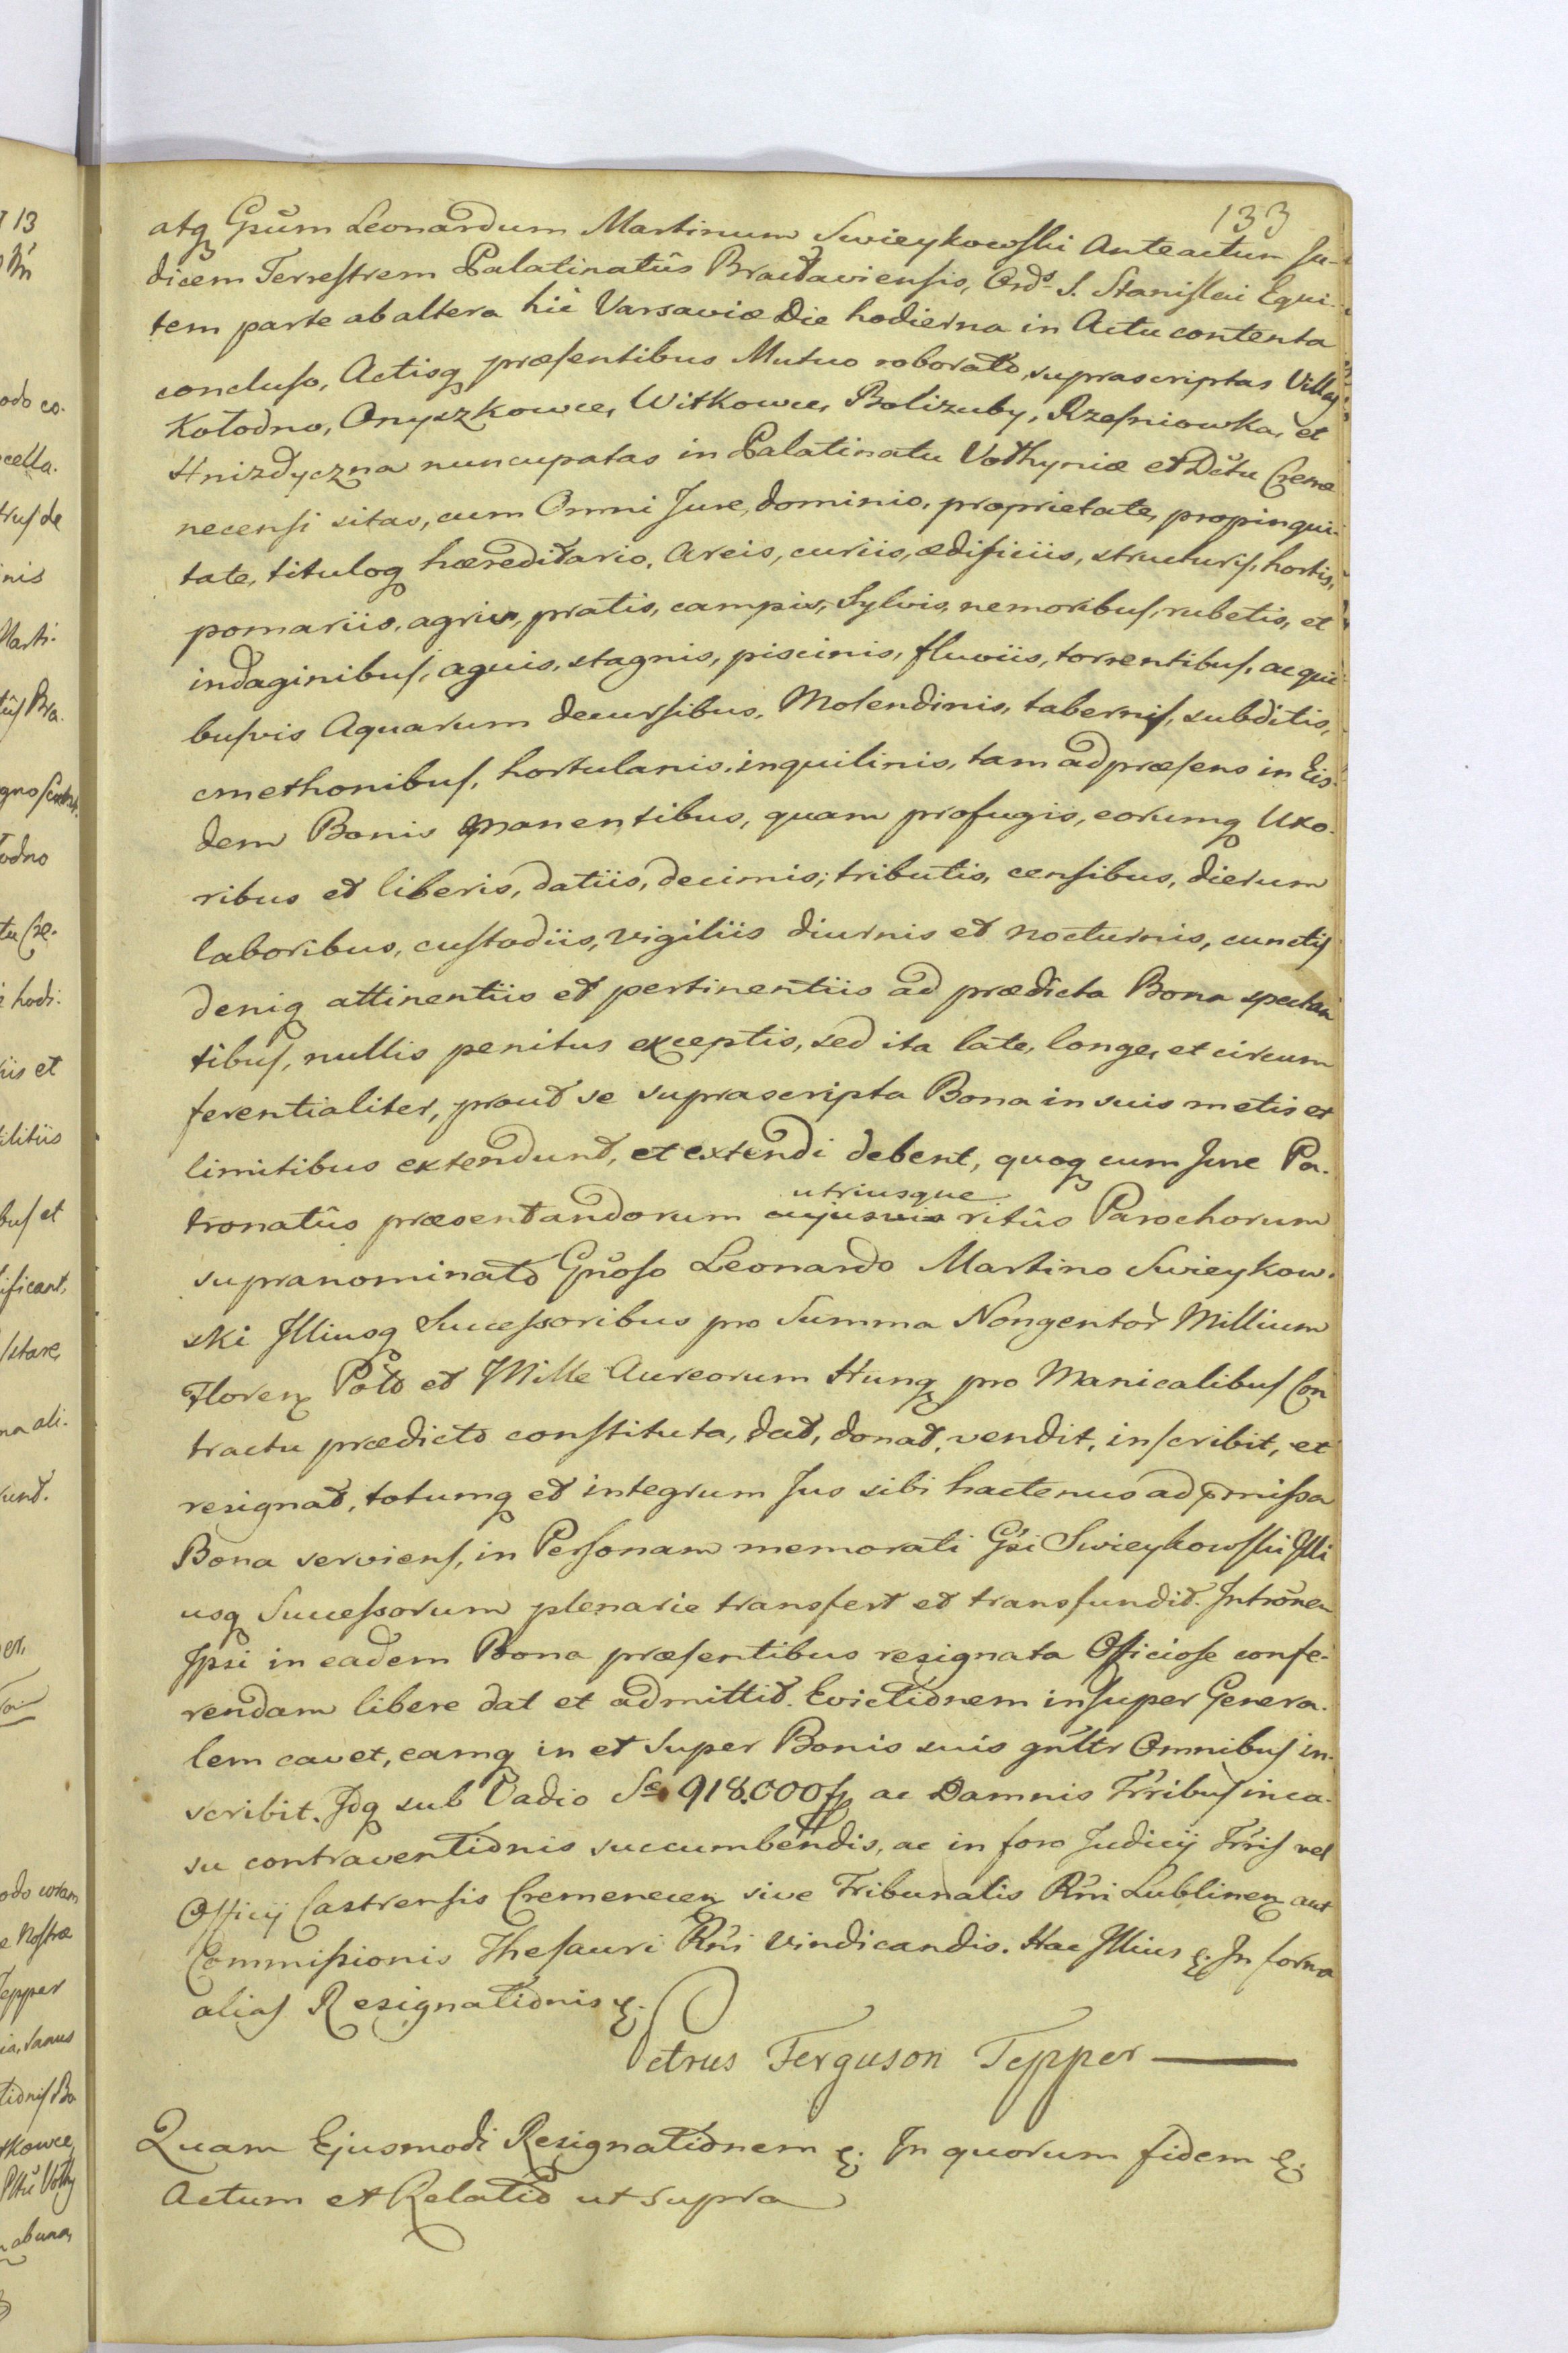 133
atq Gsum Leonardum Martinum Swieykowski Anteactum Ju-
dicem Terrestrem Palatinatûs Bracłaviensis, Ordˢ S. Stanislai Equi-
tem parte ab altera hic Varsaviæ Die hodierna in Actu contenta
concluso, Actisq præsentibus Mutuo roborato, suprascriptas Villas
Kołodno, Onyszkowce, Witkowce, Bolizuby, Rzesniowka, et
Hnizdyczna nuncupatas in Palatinatu Vołhyniæ et Dctu Creme
necensi sitas, cum Omni Jure, dominio, proprietate, propinqui-
tate, tituloq hæreditario, Areis, curiis, ædificiis, structuris, hortis,
pomariis, agris, pratis, campis, Sylvis, nemoribus, rubetis, et
indaginibus, aquis, stagnis, piscinis, fluviis, torrentibus, ac qui-
busvis Aquarum decursibus, Molendinis, tabernis, subditis,
cmethonibus, hortulanis, inquilinis, tam ad præsens in Eis-
dem Bonis manentibus, quam profugis, eorumq Uxo-
ribus et liberis, datiis, decimis, tributis, censibus, dierum
laboribus, custodiis, vigiliis diurnis et nocturnis, cunctis
deniq attinentiis et pertinentiis ad prædicta Bona spectan
tibus, nullis penitus exceptis, sed ita late, longe, et circum
ferentialiter, prout se suprascripta Bona in suis metis et
limitibus extendunt, et extendi debent, quoq cum Jure Pa-
utriusque
tronatûs præsentandorum cujusvis ritûs Parochorum
supranominato Gnoso Leonardo Martino Swieykow-
ski Illiusq Successoribus pro Summa Nongentor Millium
Floren Polo et Mille Aureorum Hung pro Manicalibus Con
tractu prædicto constituta, dat, donat, vendit, inscribit, et
resignat, totumq et integrum Jus sibi hactenus ad pmissa
Bona serviens, in Personam memorati Gsi Swieykowski Illi
usq Successorum plenarie transfert et transfundit. Intronem
Ipsi in eadem Bona præsentibus resignata Officiose confe-
rendam libere dat et admittit. Evictionem insuper Genera-
lem cavet, eamq in et super Bonis suis gnltr Omnibus in-
scribit. Idq sub Vadio Sæ 918.000 fp ac Damnis Trribus in ca-
su contraventionis succumbendis, ac in foro Judicij Trris vel
Officij Castrensis Cremenecen sive Tribunalis Rni Lublinen aut
Commissionis Thesauri Rni vindicandis. Hac Illius &. In forma
alias Resignationis &.
Petrus Ferguson Tepper
Quam Ejusmodi Resignationem &. In quorum fidem &.
Actum et Relatio ut supra